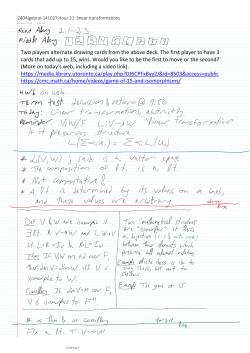 240Algebra I-141027 Hour 21: linear transformations
Read Along 2.1-2.3
Riddle Along 1 2 3 4 5 6 7 8 9
Two players alternate drawing cards from the above deck. The first player to have 3
cards that add up to 15, wins. Would you like to be the first to move or the second?
(More on today's web, including a video link).
https://cmc.math.ca/home/videos/game-of-15-and-isomorphisms/
HW6 on web.
Term test discussion & return @ 9:50
Today: Linear transformations, abstractly
Reminder V,W/F L:V→W "linear transformation"
is it preserves structure
L(∑αᵢuᵢ) = ∑αᵢL(uᵢ)
* L(V,W) is a vector space
* The composition of l.t. is a l.t.
* Not commutative!
* A l.t. is determined by its values on a basis,
and these values are arbitrary.
done
line
Def V & W are isomorphic if
∃ l.t. R:V→W and L:W→V
s.t. L∘R=I_V & R∘L=I_W
Thm If V, W are f.d. over F,
then dim V = dim W iff V is
isomorphic to W.
Corollary If dim V=n over F,
V is isomorphic to Fⁿ
Two "mathematical structures"
are "isomorphic" if there's
a bijection
between their elements which
preserves all relevant relations.
Example plastic chess is iso to
ivory chess, but not to
checkers.
Example The game of 15.
line
Fix a l.t. T:V→W